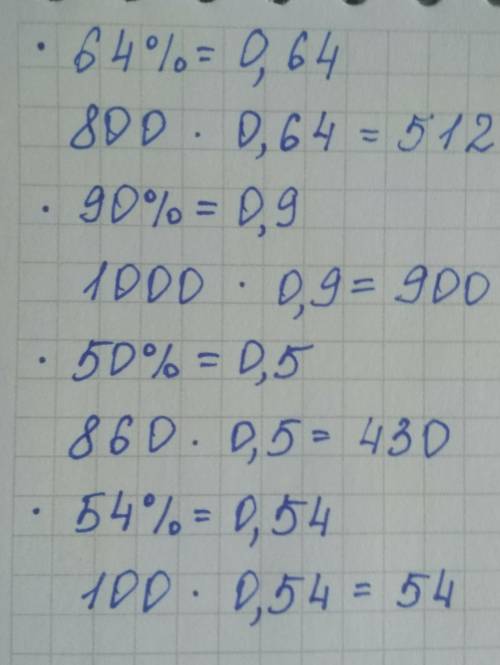 · 64% = 0,64
800 · 0,64 = 512
· 90% = 0,9
1000 · 0,9 = 900
· 50% = 0,5
860 · 0,5 = 430
· 54% = 0,54
100 · 0,54 = 54